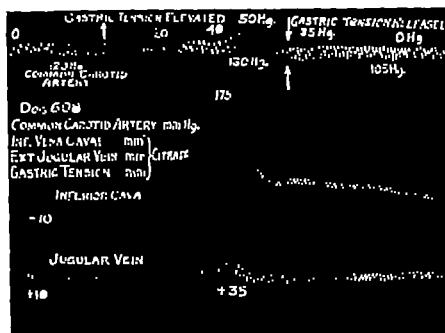 GASTRIC TENSION ELEVATED 50 Hg. GASTRIC TENSION RELEASED
0 20 40 35 Hg 0 Hg
120 Hg 130 Hg. 105 Hg.
COMMON CAROTID
ARTERY
175
DOG 608
COMMON CAROTID ARTERY mm Hg.
INF. VENA CAVAL mm
EXT JUGULAR VEIN mm CITRATE
GASTRIC TENSION mm
INFERIOR CAVA
-10
JUGULAR VEIN
+10 +35